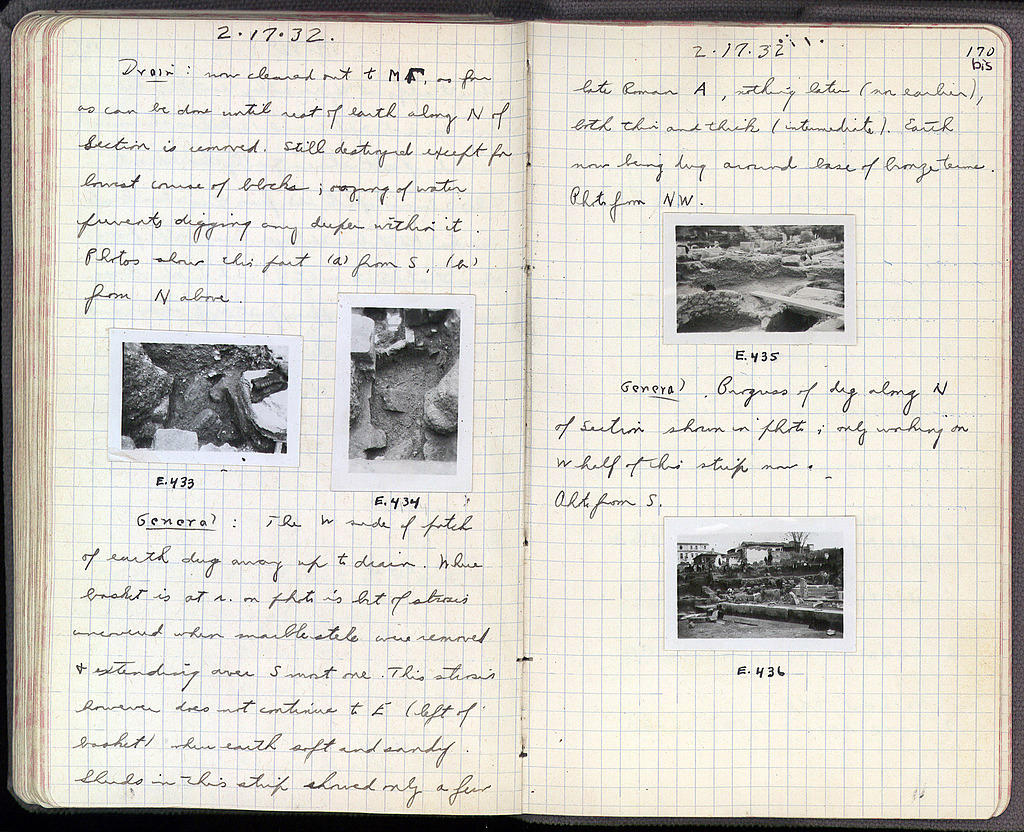 2.17.32.
Drain : now cleared out to ΜΓ, as far
as can be done until rest of earth along N of
Section is removed. Still destroyed except for
lowest course of blocks ; oozing of water
prevents digging any deeper within it.
Photos show this part (a) from S, (b)
from N above.
E.433
E.434
General : The W side of patch
of earth dug away up to drain. Where
basket is at r. on photo is bit of strosis
uncovered when marble stele were removed
& extending over S most one. This strosis
however does not continue to E (left of
basket) where earth soft and sandy.
Sherds in this strip showed only a few
2.17.32
170
bis
late Roman A, nothing later (nor earlier),
both thin and thick (intermediate). Earth
now being dug around base of bronze
Photo from NW.
E.435
General. Progress of dig along N
of Section shown in photo ; only working on
W half of this strip now.
Photo from S.
E.436